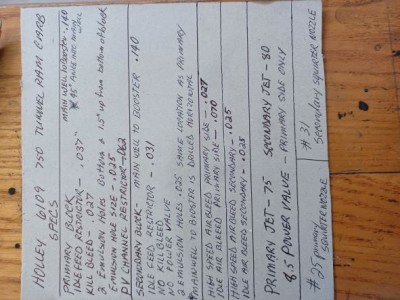 HOLLEY 6109 750 TUNNEL RAM CARB
SPECS
PRIMARY BLOCK MAIN WELL TO BOOSTER - .140
IDLE FEED RESTRICTOR - .037" * 45° ANGLE INTO MAIN WELL
KILL BLEED - .027
2 EMULSION HOLES BOTTOM & 1.5" up from bottom of block
EMULSION HOLE SIZE - .025
PV CHANNEL RESTRICTOR - .062
SECONDARY BLOCK - MAIN WELL TO BOOSTER - .140
IDLE FEED RESTRICTOR - .031
NO KILL BLEED
NO POWER VALVE
2 EMULSION HOLES .025 SAME LOCATION AS PRIMARY
*MAIN WELL TO BOOSTER IS DRILLED HORIZONTAL
HIGH SPEED AIR BLEED PRIMARY SIDE - .027
IDLE AIR BLEED PRIMARY SIDE - .070
HIGH SPEED AIR BLEED SECONDARY - .025
IDLE AIR BLEED SECONDARY - .025
PRIMARY JET - 75 SECONDARY JET - 80
8.5 POWER VALVE - PRIMARY SIDE ONLY
#21 primary squirter nozzle
#31 secondary squirter nozzle